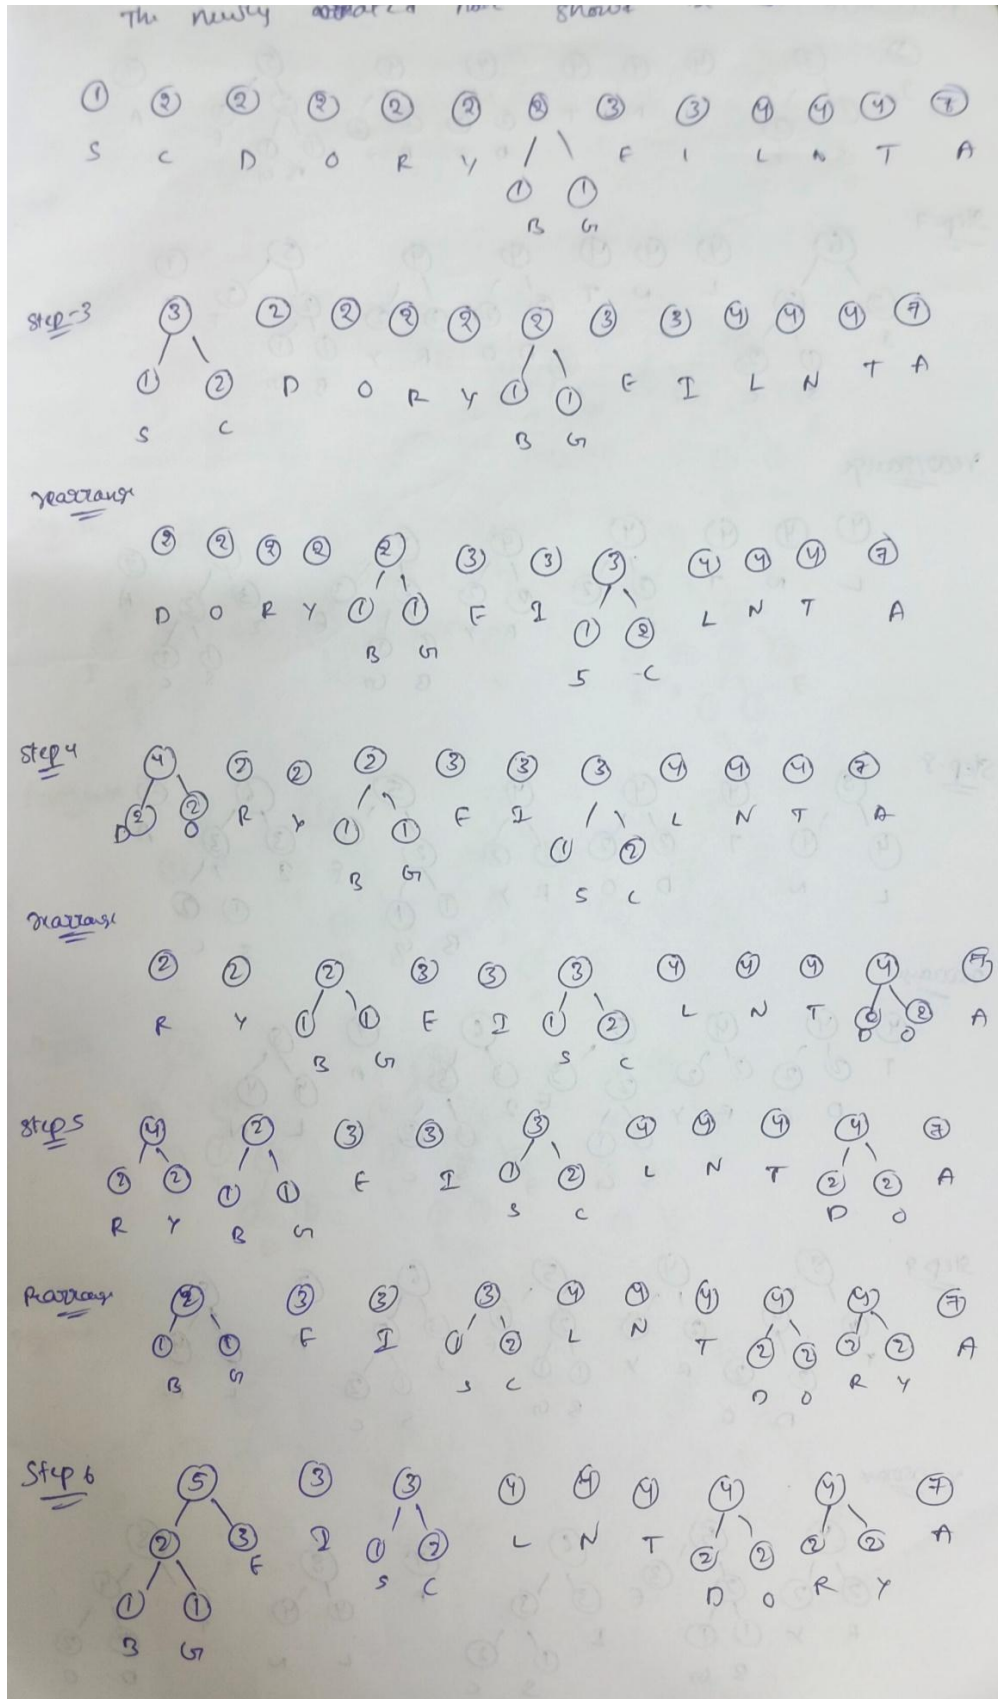 The newly
1 2 2 2 2 2 2 3 3 4 4 4 7
S C D O R Y F I L N T A
1 1
B G
Step-3 3 2 2 2 2 2 3 3 4 4 4 7
1 2 D O R Y 1 1 E I L N T A
S C B G
rearrange
2 2 2 2 2 3 3 3 4 4 4 7
D O R Y 1 1 E I 1 2 L N T A
B G S C
Step 4 4 2 2 2 3 3 3 4 4 4 7
D 2 2 O R Y 1 1 E I 1 2 L N T A
B G S C
rearrange
2 2 2 3 3 3 4 4 4 4 7
R Y 1 1 E I 1 2 L N T 2 2 A
B G S C D O
Step 5 4 2 3 3 3 4 4 4 4 7
2 2 1 1 E I 1 2 L N T 2 2 A
R Y B G S C D O
Rearrange 2 3 3 3 4 4 4 4 4 7
1 1 E I 1 2 L N T 2 2 2 2 A
B G S C D O R Y
Step 6 5 3 3 4 4 4 4 4 7
2 3 E I 1 2 L N T 2 2 2 2 A
S C D O R Y
1 1
B G